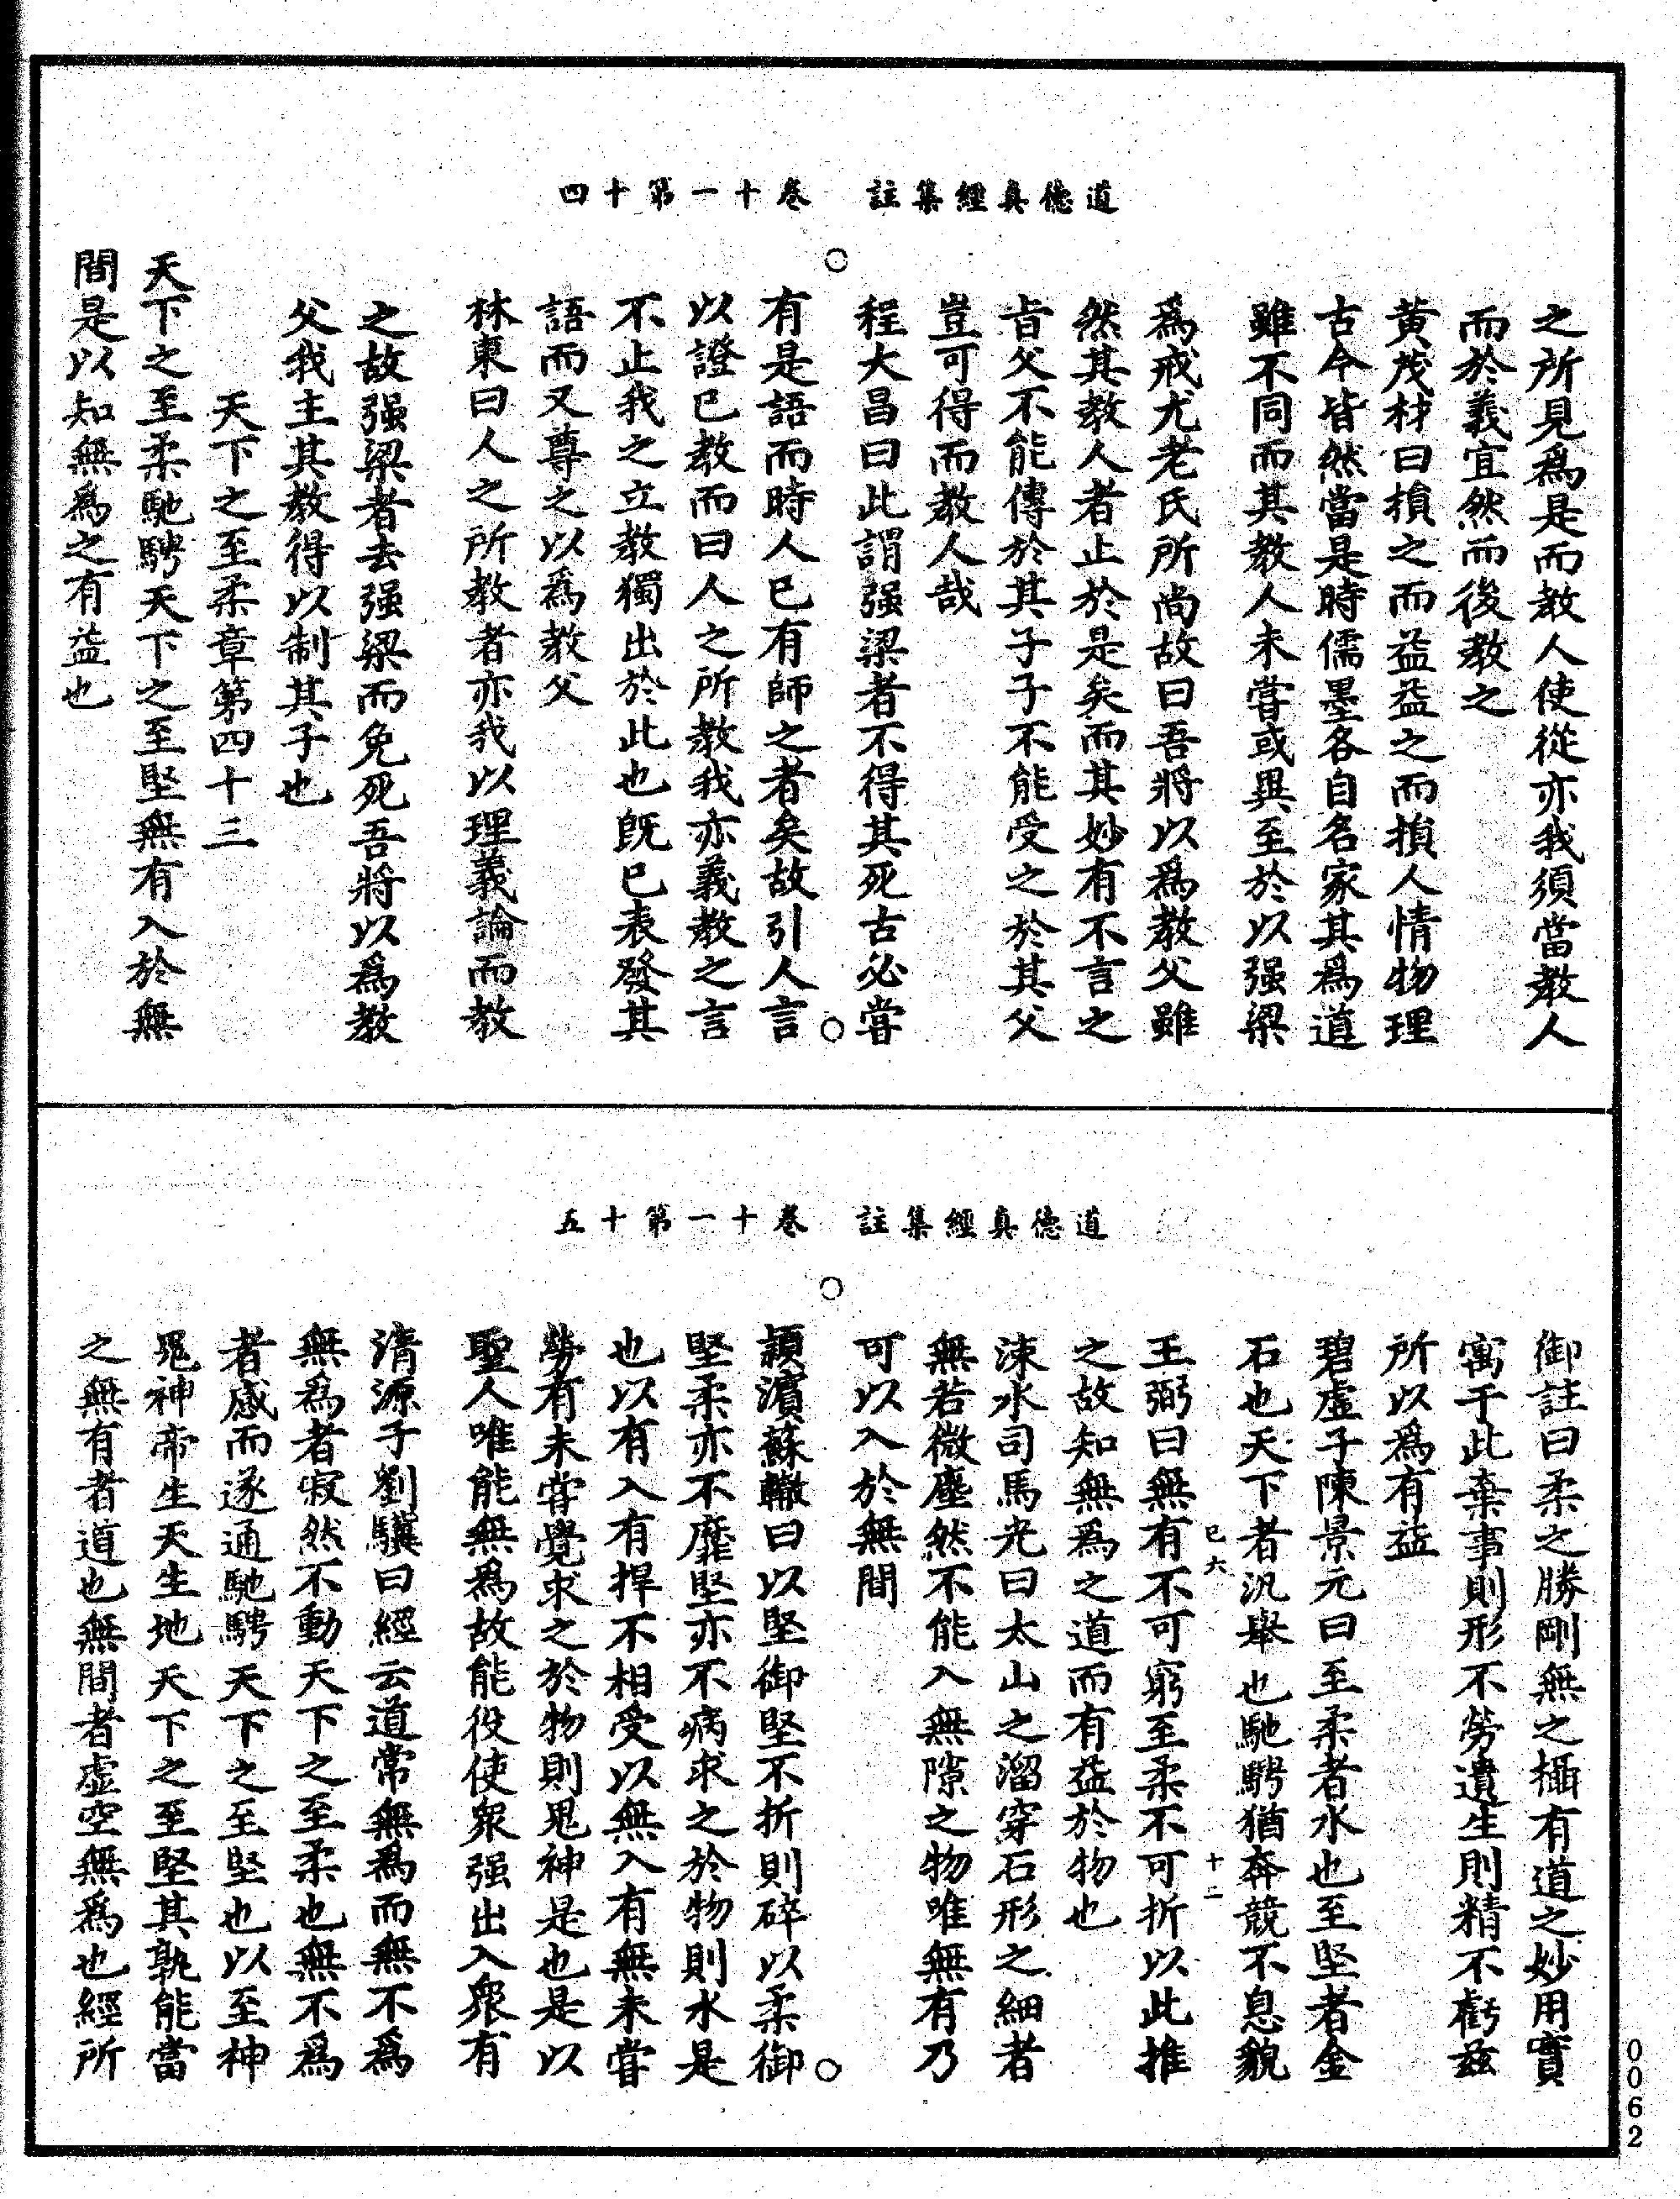 道德真經集註　卷十一第十四
之所見為是而教人使從亦我須當教人
而於義宜然而後教之
黃茂材曰損之而益益之而損人情物理
古今皆然當是時儒墨各自名家其為道
雖不同而其教人未嘗或異至於以强梁
為戒尤老氏所尚故曰吾將以為教父雖
然其教人者止於是矣而其妙有不言之
旨父不能傳於其子子不能受之於其父
豈可得而教人哉
程大昌曰此謂强梁者不得其死古必嘗
有是語而時人已有師之者矣故引人言
以證已教而曰人之所教我亦義教之言
不止我之立教獨出於此也既已表發其
語而又尊之以為教父
林東曰人之所教者亦我以理義論而教
之故强梁者去强梁而免死吾將以為教
父我主其教得以制其子也
天下之至柔章第四十三
天下之至柔馳騁天下之至堅無有入於無
間是以知無為之有益也
道德真經集註　卷十一第十五
御註曰柔之勝剛無之攝有道之妙用實
寓于此棄事則形不勞遺生則精不虧茲
所以為有益
碧虛子陳景元曰至柔者水也至堅者金
石也天下者汎舉也馳騁猶奔競不息貌
已六　十二
王弼曰無有不可窮至柔不可折以此推
之故知無為之道而有益於物也
涑水司馬光曰太山之溜穿石形之細者
無若微塵然不能入無隙之物唯無有乃
可以入於無間
潁濱蘇轍曰以堅御堅不折則碎以柔御
堅柔亦不靡堅亦不病求之於物則水是
也以有入有捍不相受以無入有無未嘗
勞有未嘗覺求之於物則鬼神是也是以
聖人唯能無為故能役使眾强出入眾有
清源子劉驥曰經云道常無為而無不為
無為者寂然不動天下之至柔也無不為
者感而遂通馳騁天下之至堅也以至神
鬼神帝生天生地天下之至堅其孰能當
之無有者道也無間者虛空無為也經所
0062